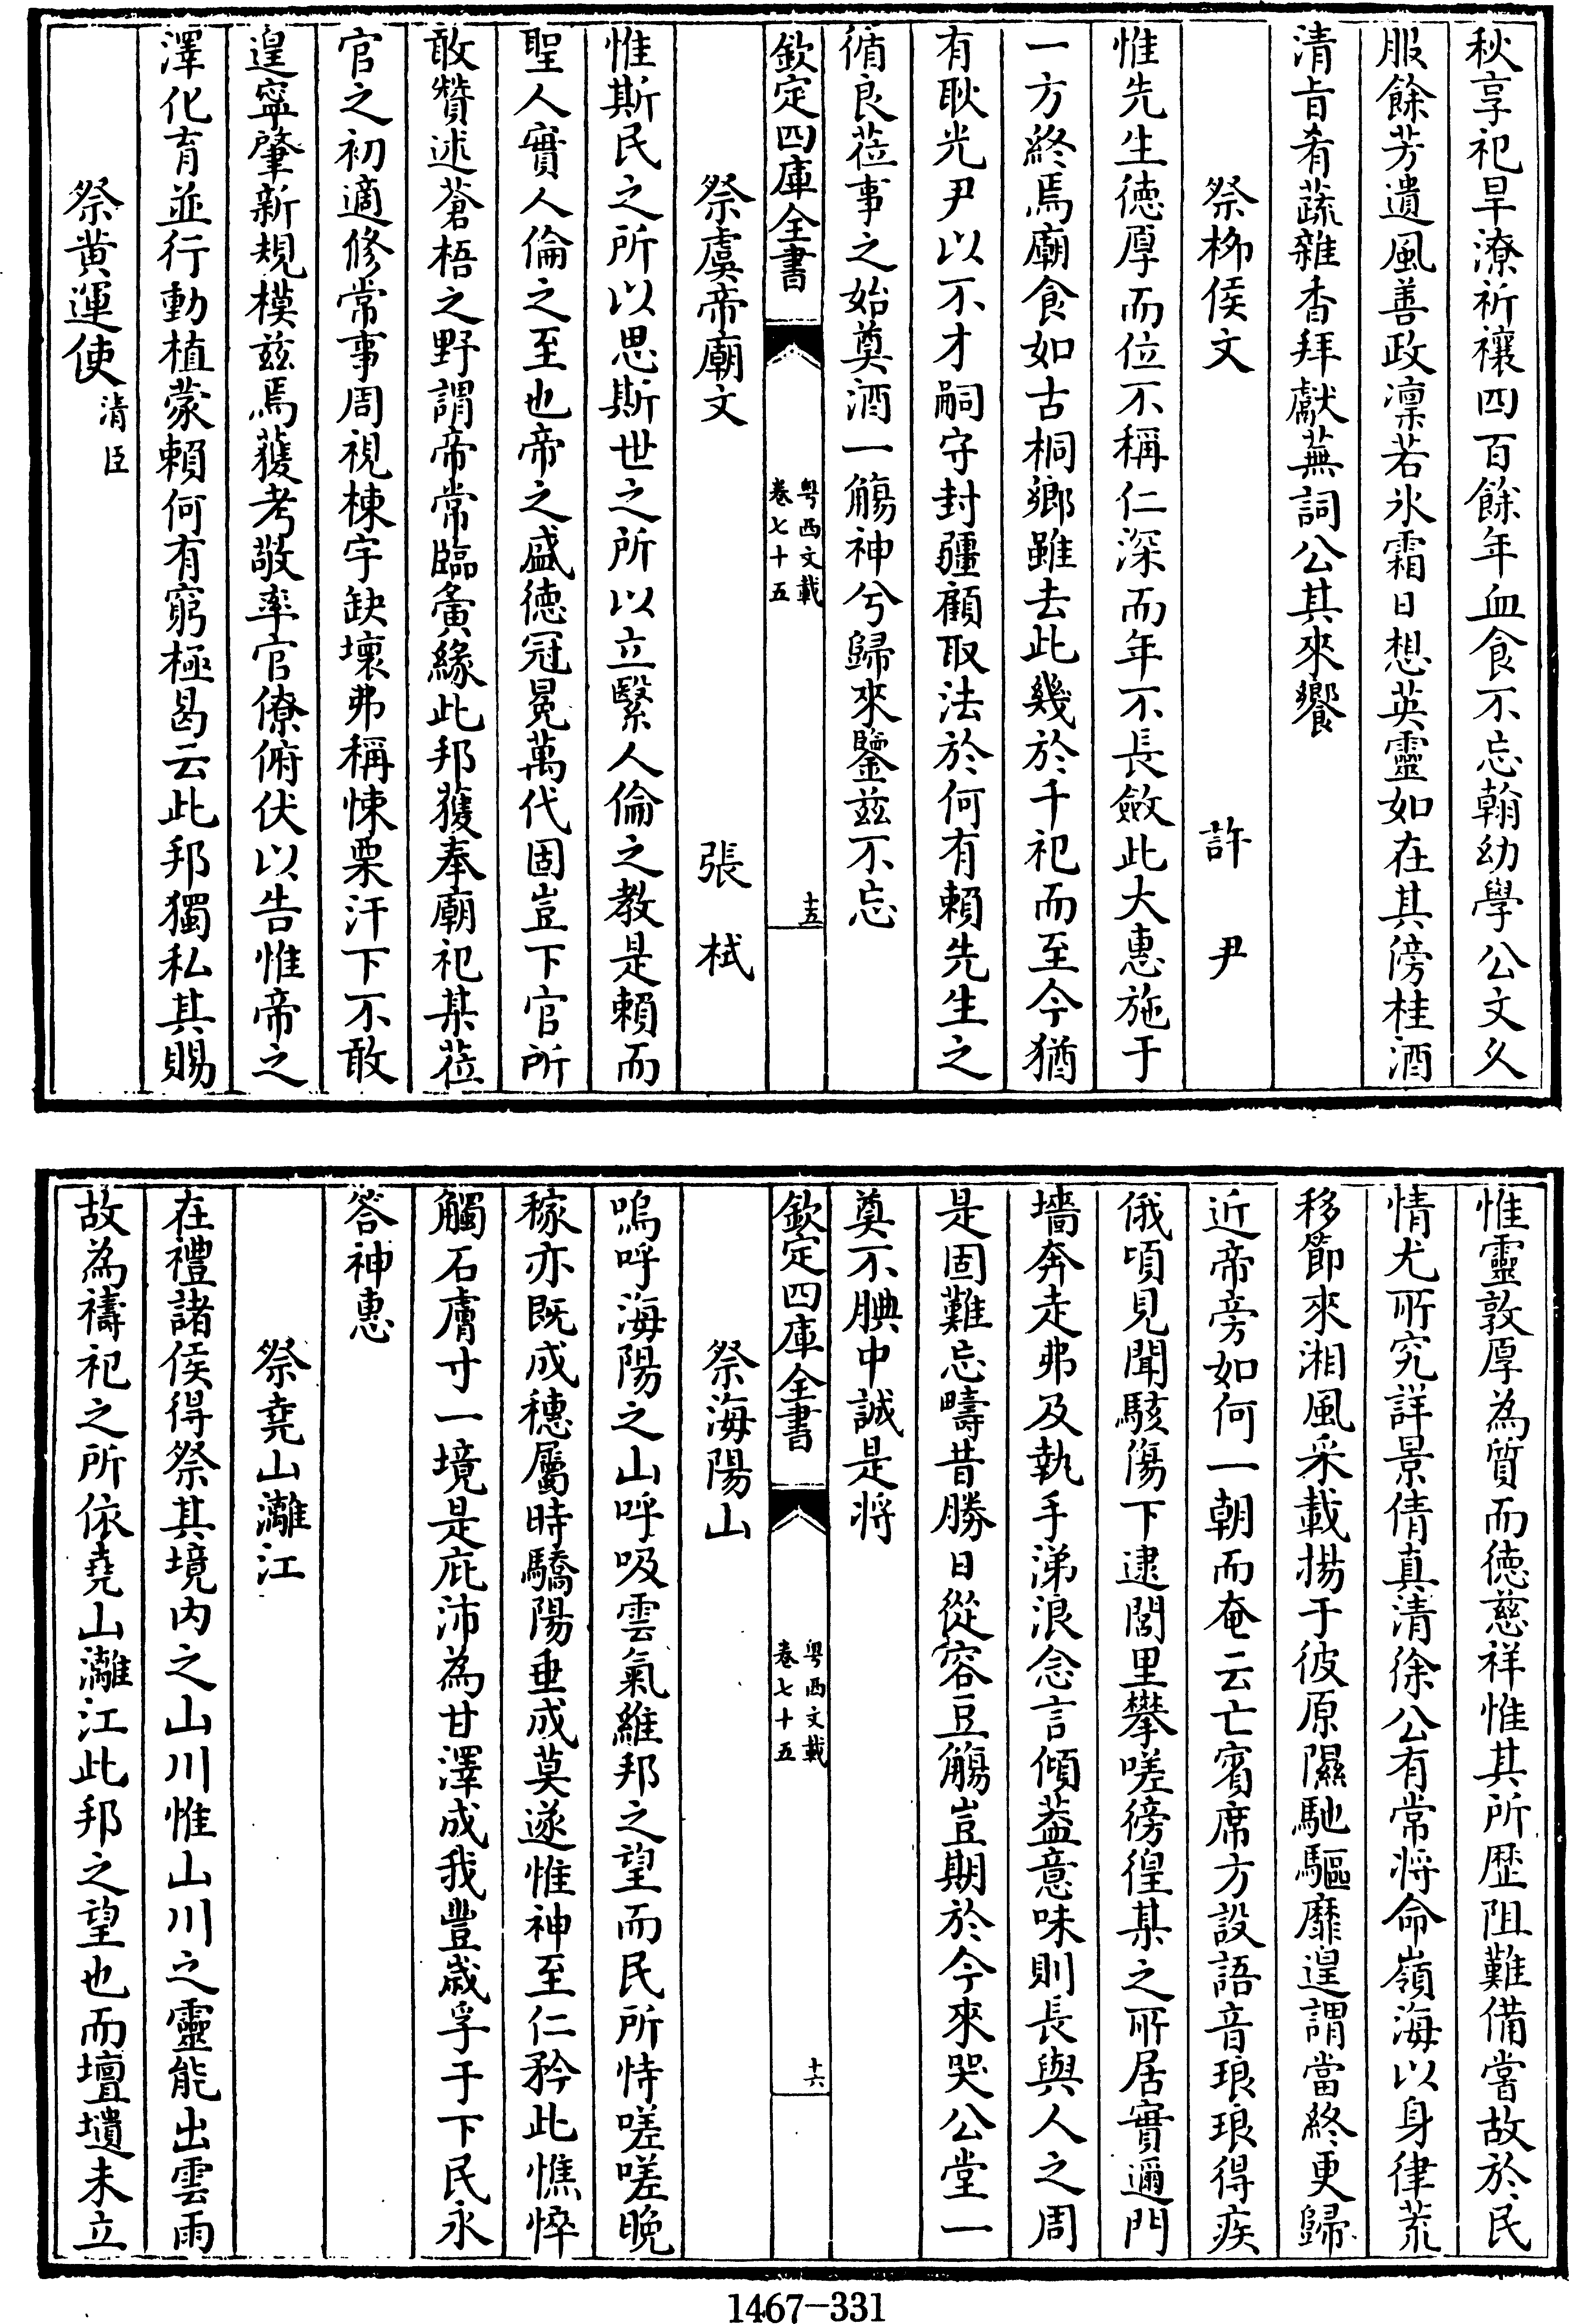 秋享祀旱潦祈禳四百餘年血食不忘翰幼學公文久
服餘芳遺風善政凛若氷霜日想英靈如在其傍桂酒
清旨肴蔬雜香拜獻蕪詞公其來饗
祭栁侯文 許尹
惟先生德厚而位不稱仁深而年不長斂此大惠施于
一方終焉廟食如古桐鄉雖去此幾於千祀而至今猶
有耿光尹以不才嗣守封疆顧取法於何有賴先生之
循良莅事之始奠酒一觴神兮歸來鑒兹不忘
欽定四庫全書 粤西文載卷七十五 十五
祭虞帝廟文 張栻
惟斯民之所以思斯世之所以立繄人倫之教是賴而
聖人實人倫之至也帝之盛德冠冕萬代固豈下官所
敢贊述蒼梧之野謂帝常臨夤緣此邦獲奉廟祀某莅
官之初適修常事周視棟宇缺壞弗稱悚栗汗下不敢
遑寧肇新規模兹焉獲考敬率官僚俯伏以告惟帝之
澤化育並行動植蒙賴何有窮極曷云此邦獨私其賜
祭黄運使清臣
惟靈敦厚為質而德慈祥惟其所歴阻難備嘗故於民
情尤所究詳景倩真清徐公有常將命嶺海以身律荒
移節來湘風采載揚于彼原隰馳驅靡遑謂當終更歸
近帝旁如何一朝而奄云亡賓席方設語音琅琅得疾
俄頃見聞駭傷下逮閭里攀嗟徬徨某之所居實邇門
墻奔走弗及執手涕浪念言傾葢意味則長與人之周
是固難忘疇昔勝日從容豆觴豈期於今來哭公堂一
奠不腆中誠是將
欽定四庫全書 粤西文載卷七十五 十六
祭海陽山
嗚呼海陽之山呼吸雲氣維邦之望而民所恃嗟嗟晚
稼亦既成穗屬時驕陽垂成莫遂惟神至仁矜此憔悴
觸石膚寸一境是庇沛為甘澤成我豐歲孚于下民永
答神惠
祭堯山灕江
在禮諸侯得祭其境内之山川惟山川之靈能出雲雨
故為禱祀之所依堯山灕江此邦之望也而壇壝未立
1467-331